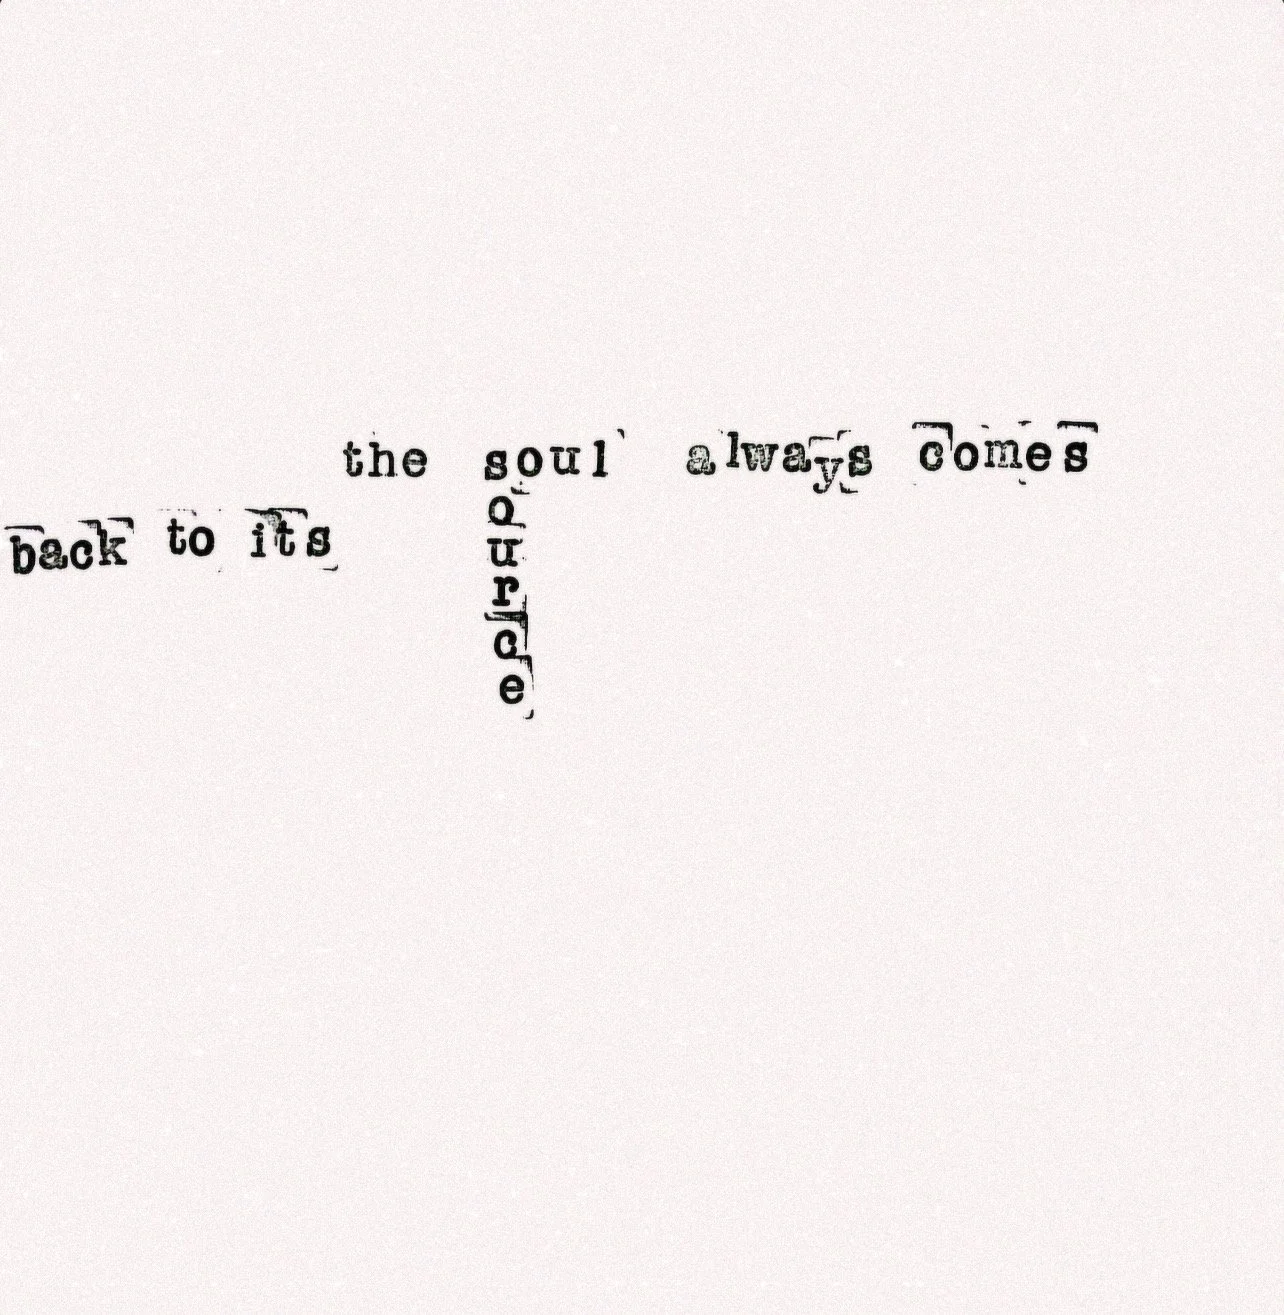 the soul always comes
back to its
source